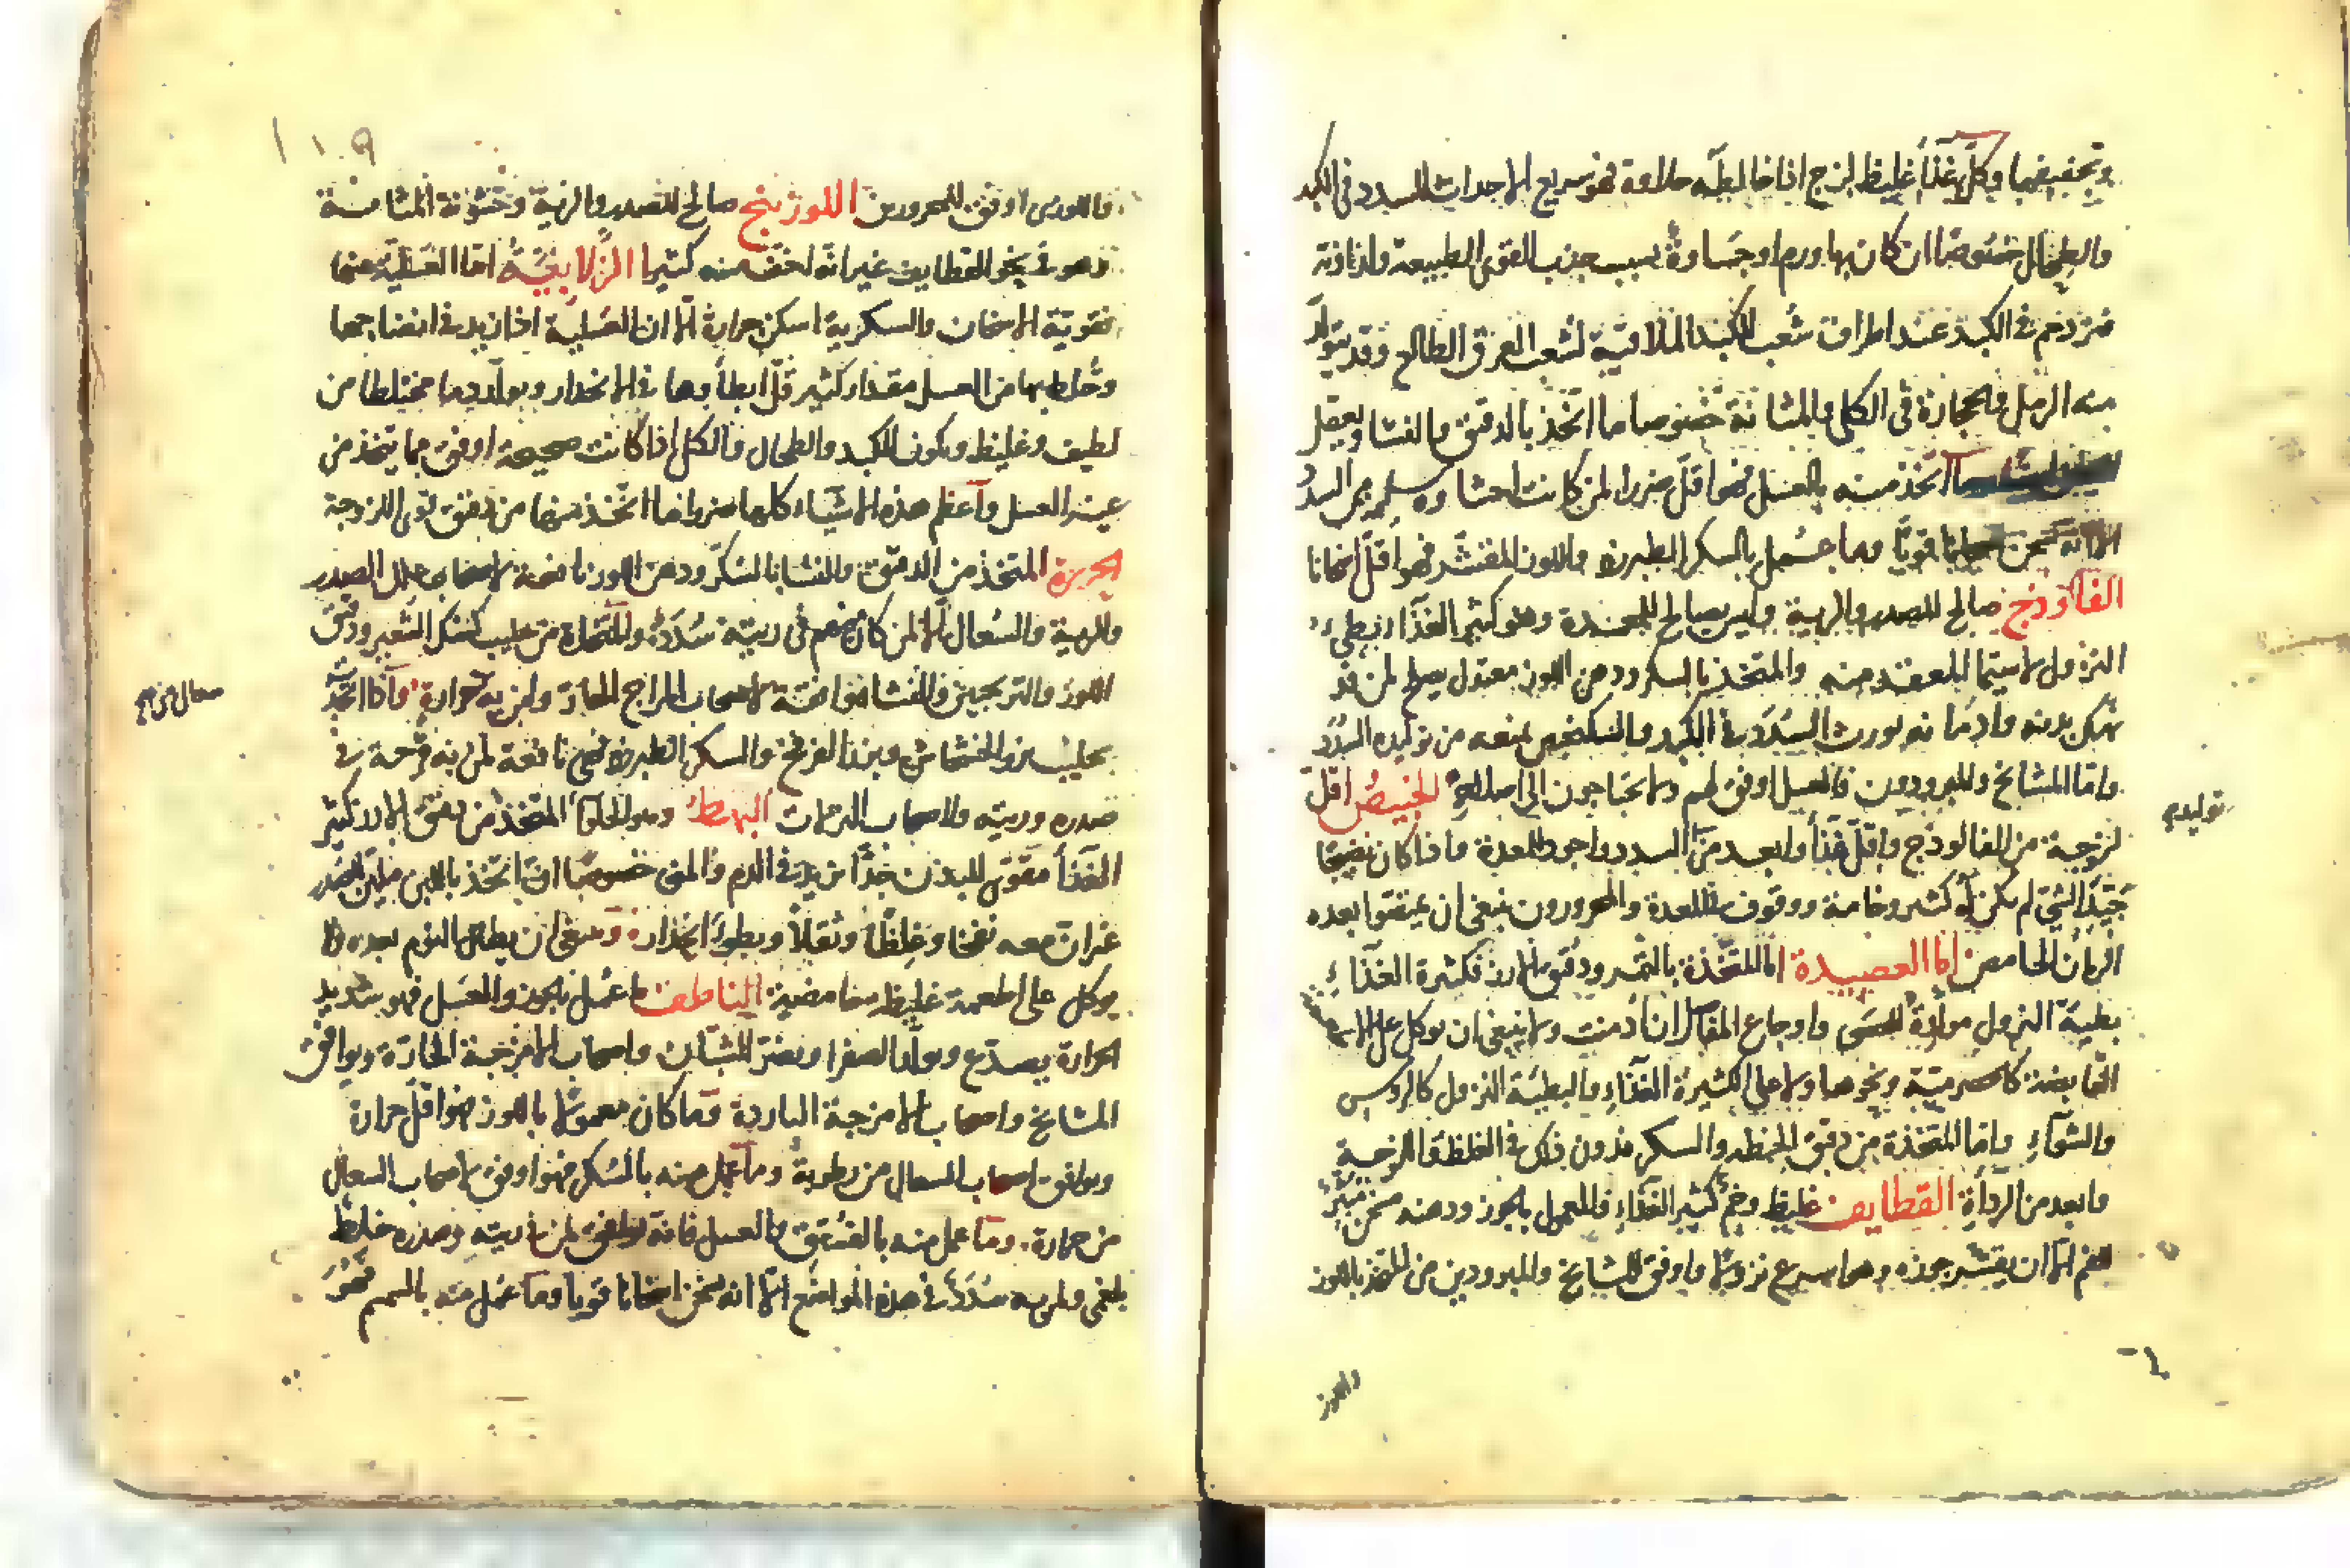 وتجفيفها وكل غذاء غليظ لزج اذا خالطه حلاوة فهو سريع الاحداث للسدد في الكبد
والطحال خصوصًا ان كان بها ورم او جساوة بسبب جذب القوى الطبيعة ولذاذته
فيزدحم في الكبد عند اطراف شعب الكبد الملاقية لشعب العرق الطالع وقد يتولد
منه الرمل والحجارة في الكلى والمثانة خصوصا ما اتخذ بالدقيق والنشا ويعقل
اتخذ منه بالعسل فهو اقل ضررا لمن كانت احشاوه سليمة من السدد
الا انه يسخن اسخانا قويًا وما عمل بالسكر الطبرزد واللوز المقشر فهو اقل اسخانا
الفالوذج صالح للصدر والرية وليس بصالح للمعدة وهو كثير الغذاء بطيء
النزول لاسيما المعقد منه والمتخذ بالسكر ودهن اللوز معتدل يصلح لمن قد
نهك بدنه وادمانه يورث السدد في الكبد والسكنجبين يمنعه من توليده السدد
واما المشايخ والمبرودون فالعسل اوفق لهم ولا يحتاجون الى اصلاحه الخبيص اقل
لزوجة من الفالوذج واقل غذاء وابعد من السدد واجود للمعدة واذا كان نضيجًا
جيد الشي لم يكن له كثير وخامة ووقوف للمعدة والمحرورون ينبغي ان يمتصوا بعده
الرمان الحامض اما العصيدة اما المتخذة بالتمر ودقيق الارز فكثيرة الغذاء
بطيئة النزول مولدة للحصى واوجاع المفاصل ان ادمنت ولا ينبغي ان توكل على الاشياء
القابضة كالحصرمية ونحوها ولا على الكثيرة الغذاء والبطيئة النزول كالروس
والشواء واما المتخذة من دقيق الحنطه والسكر فدون ذلك في الغلظ واللزوجة
وابعد من الرداة القطايف غليظ وخم كثير الغذاء والمعمول بالجوز ودهنه مسخن مبثر
الفم الا ان يقشر جوزه وهما سريع نزولا واوفق للمشايخ والمبرودين من المتخذ باللوز
واللوز
توليده
فاللوزى اوفق للمحرورين اللوزينج صالح للصدر والرية وخشونة المثانة
وهو في نحو القطايف غير انه اخف منه كثيرا الزلابية اما العسلية منها
فقوية الاسخان والسكرية اسكن حرارة الا ان العسلية اذا زيد في انضاجها
وخلط بها من العسل مقدار كثير قل ابطاوها في الانحدار ويولد دما مختلطا من
لطيف وغليظ ويكون للكبد والطحال والكلى اذا كانت صحيحة اوفق مما يتخذ من
غير العسل واعظم هذه الاشياء كلها ضررا ما اتخذ منها من دقيق قوى اللزوجة
الحريرة المتخذ من الدقيق والنشا بالسكر ودهن اللوز نافعة لاصحاب علل الصدر
والرية والسعال الا لمن كان منهم في ريته سدد والمتخذة من حليب كشك الشعير ودقيق
اللوز والترنجبين والنشا موافقة لاصحاب المزاج الحارة ولمن به حرارة واذا اتخذ
بحليب بزر الخشخاش وبزر القرع والسكر الطبرزد فهي نافعة لمن به قرحة في
صدره وريته ولاصحاب النزلات البهط وهو الحلوا المتخذ من دقيق الارز كثير
الغذاء مقوى للبدن جدًا يزيد في الدم والمنى خصوصًا ان اتخذ باللبن ملين للصدر
غير ان معه نفخا وغلظا وثقلا وبطوء انحدار وينبغي ان يطال النوم بعده ولا
يوكل على اطعمة غليظه حامضية الناطف ما عمل بالجوز والعسل فهو شديد
الحرارة يصدع ويولد الصفرا ويضر للشبان واصحاب الامزجة الحارة ويوافق
المشايخ واصحاب الامزجة الباردة وما كان معمولا باللوز فهو اقل حرارة
ويوافق اصحاب السعال من رطوبة وما عمل منه بالسكر فهو اوفق لاصحاب السعال
من حرارة وما عمل منه بالفستق والعسل فانه يوافق لمن في ريته وصدره خلط
بلغمى ولمن به سدد في هذه المواضع الا انه يسخن اسخانا قويا وما عمل منه بالسمسم فهو